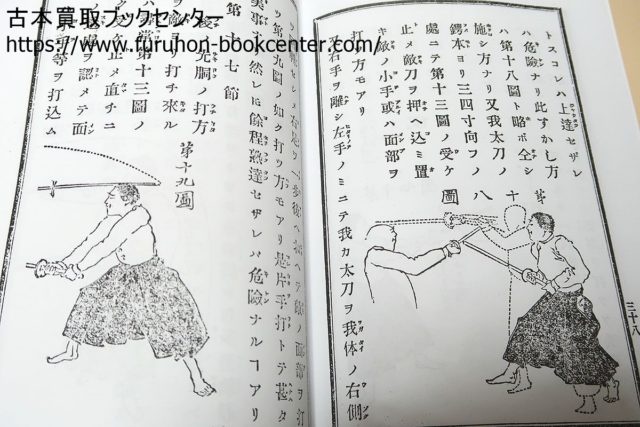 古本買取ブックセンター
https://www.furuhon-bookcenter.com/
三十八
トスコレハ上達セザレ
ハ危險ナリ此すかし方
ハ第十八圖ト略ボ仝シ
施シ方ナリ又我太刀ノ
鍔本ヨリ三四寸向フノ
處ニテ第十三圖ノ受ケ
止メ敵刀ヲ押ヘ込ミ置
キ敵ノ小手或ハ面部ヲ
打ツ方モアリ
第十八圖
又右手ヲ離シ左手ノミニテ我カ太刀ヲ我体ノ右側
一歩後ヘ 敵ノ面部ヲ打
ヲ第九圖ノ如ク打ツ方モアリ是片手打トテ甚タ
美事 然レ 餘程熟達セザレバ危險ナルヿアリ
第十七節
後ノ先胴ノ打方
敵ヨリ打チ來ル
常第十三圖ノ
ケ止メ直チニ
處ヲ認メテ面
等ヲ打込ム
第十九圖